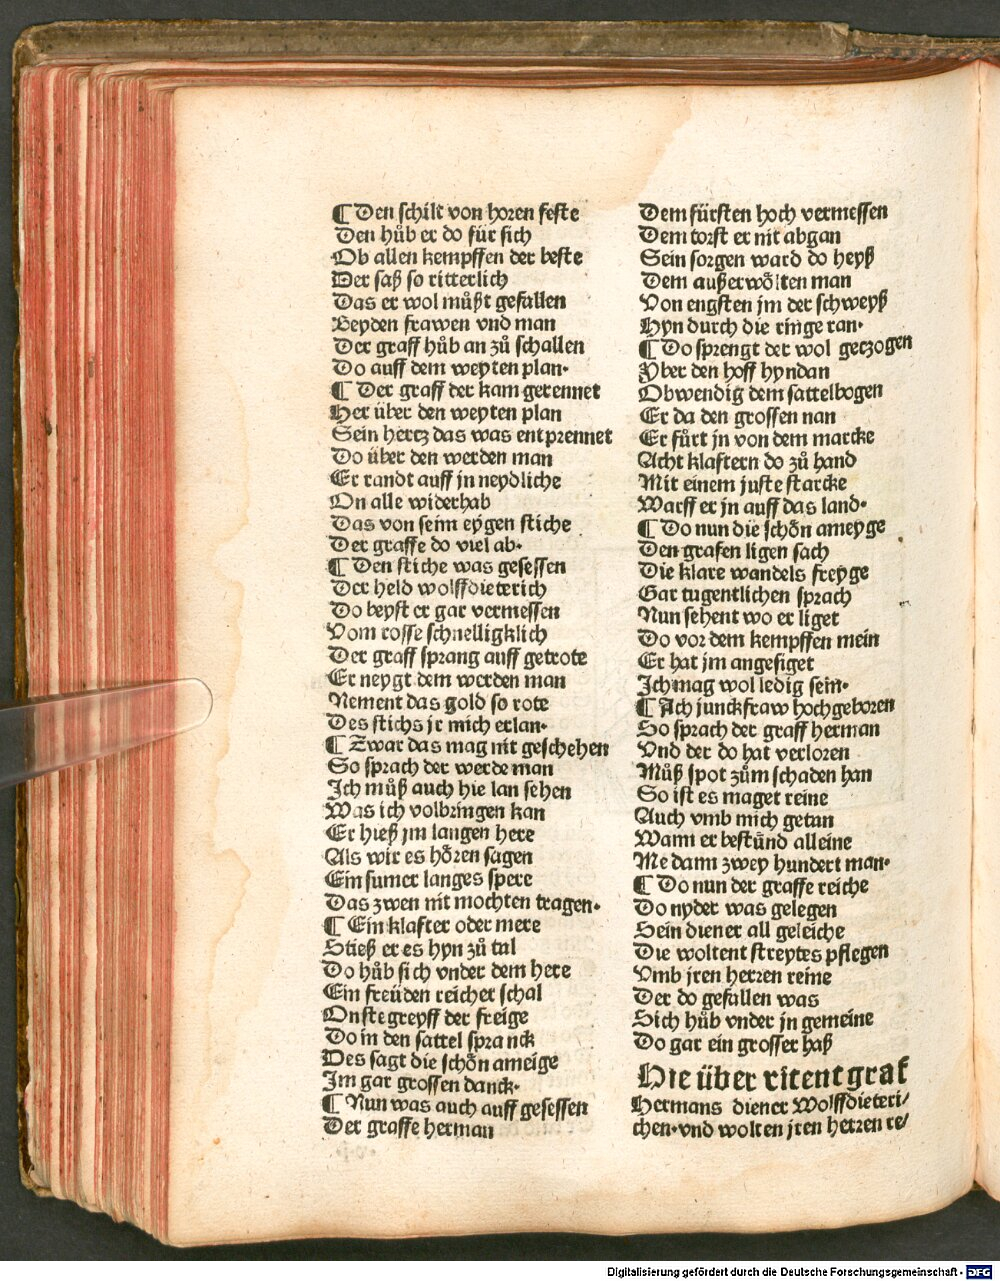 ¶ Den schilt von horen feste
Den hůb er do für sich
Ob allen kempffen der beste
Der saß so ritterlich
Das er wol můßt gefallen
Beyden frawen vnd man
Der graff hůb an zů schallen
Do auff dem weyten plan·
¶ Der graff der kam gerennet
Her über den weyten plan
Sein hertz das was entprennet
Do über den werden man
Er randt auff jn neydliche
On alle widerhab
Das von seim eygen stiche
Der graffe do viel ab·
¶ Den stiche was gesessen
Der held wolffdieterich
Do beyst er gar vermessen
Vom rosse schnelligklich
Der graff sprang auff getrote
Er neygt dem werden man
Nement das gold so rote
Des stichs jr mich erlan·
¶ Zwar das mag nit geschehen
So sprach der werde man
Ich můß auch hie lan sehen
Was ich volbringen kan
Er hieß jm langen here
Als wir es hören sagen
Ein sumer langes spere
Das zwen nit mochten tragen·
¶ Ein klafter oder mere
Stieß er es hyn zů tal
Do hůb sich vnder dem here
Ein freüden reicher schal
On stegreyff der freige
Do in den sattel spranck
Des sagt die schön ameige
Im gar grossen danck·
¶ Nun was auch auff gesessen
Der graffe herman
Dem fürsten hoch vermessen
Dem torst er nit abgan
Sein sorgen ward do heyß
Dem außerwölten man
Von engsten jm der schweyß
Hyn durch die ringe ran·
¶ Do sprengt der wol geczogen
Yber den hoff hyndan
Obwendig dem sattelbogen
Er da den grossen nan
Er fůrt jn von dem marcke
Acht klaftern do zů hand
Mit einem juste starcke
Warff er jn auff das land·
¶ Do nun die schön ameyge
Den grafen ligen sach
Die klare wandels freyge
Gar tugentlichen sprach
Nun sehent wo er liget
Do vor dem kempffen mein
Er hat jm angesiget
Ich mag wol ledig sein·
¶ Ach junckfraw hochgeboren
So sprach der graff herman
Vnd der do hat verloren
Můß spot zům schaden han
So ist es maget reine
Auch vmb mich getan
Wann er bestůnd alleine
Me dann zwey hundert man·
¶ Do nun der graffe reiche
Do nyder was gelegen
Sein diener all geleiche
Die woltent streytes pflegen
Vmb jren herren reine
Der do gefallen was
Sich hůb vnder jn gemeine
Do gar ein grosser haß
Hie über ritent graf
Hermans diener Wolffdieteri/
chen·vnd wolten jren herren re/
Digitalisierung gefördert durch die Deutsche Forschungsgemeinschaft - DFG